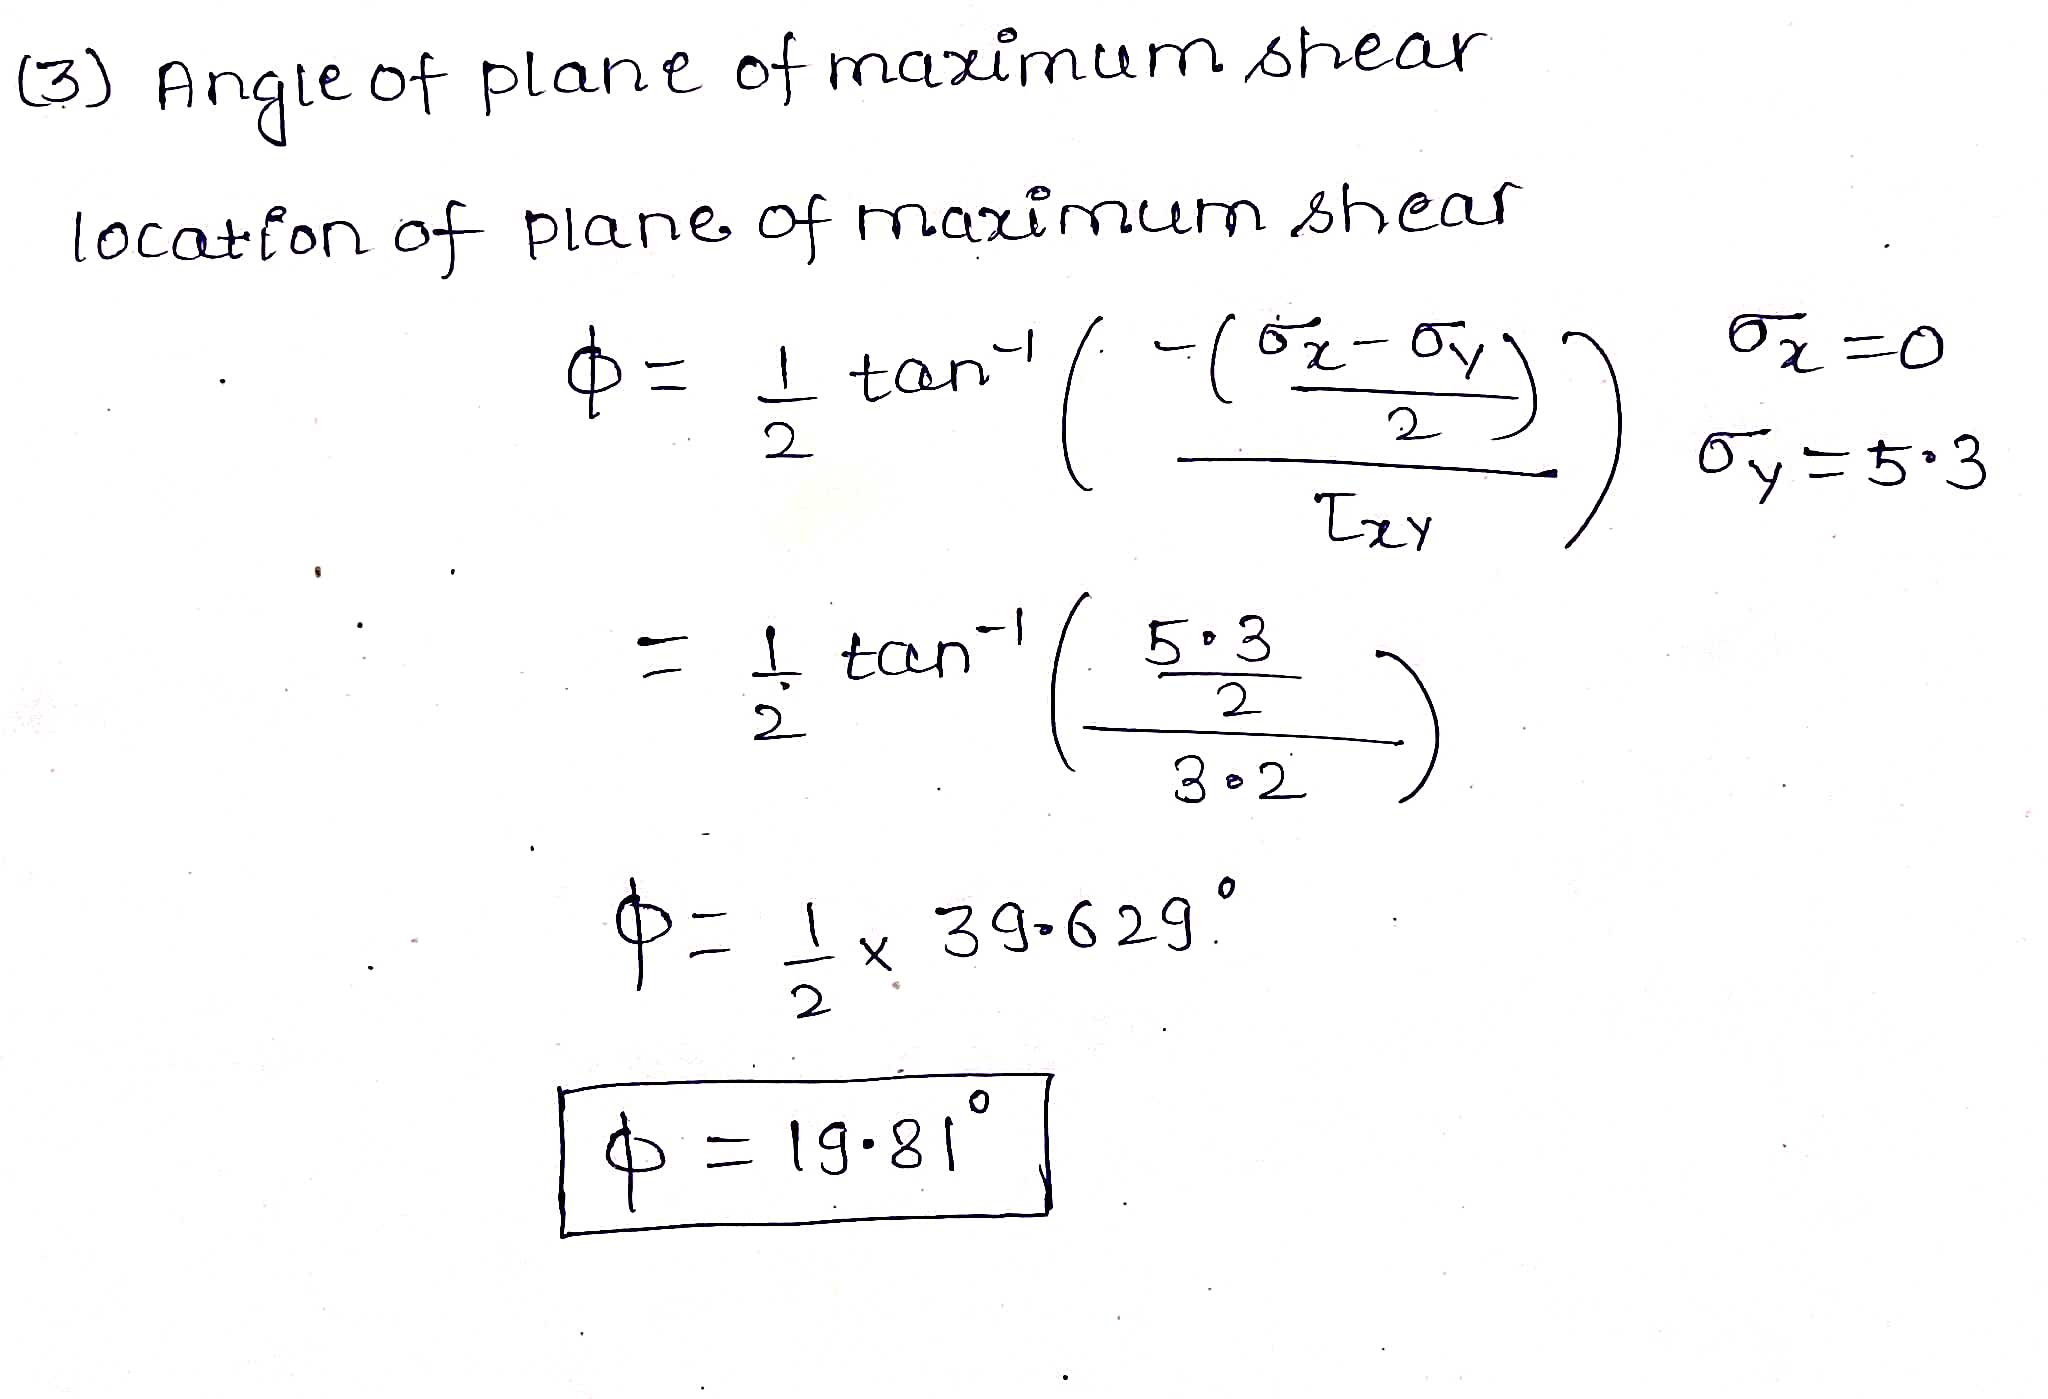 (3) Angle of plane of maximum shear
location of plane of maximum shear
ϕ = 1/2 tan⁻¹ ( -((σx - σy)/2) / τxy ) σx = 0
σy = 5.3
= 1/2 tan⁻¹ ( (5.3/2) / 3.2 )
ϕ = 1/2 x 39.629°
ϕ = 19.81°